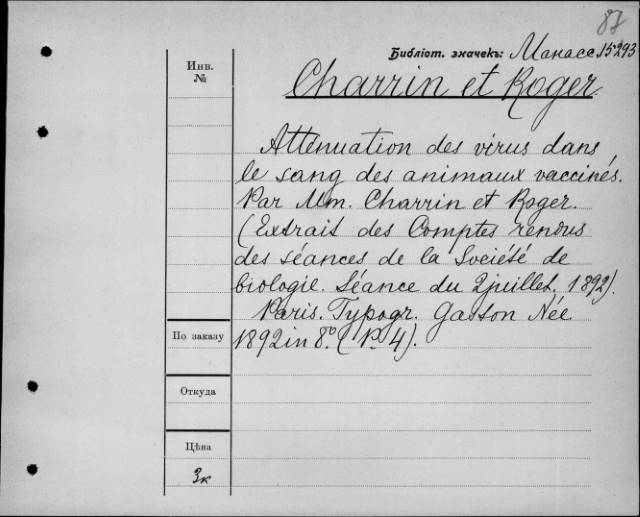 87
Библіот. значекъ: Манасс 15293
Инв.
№
Charrin et Roger
Attenuation des virus dans
le sang des animaux vaccinés.
Par Mm. Charrin et Roger.
(Extrait des Comptes rendus
des séances de la Société de
biologie. Séance du 2 juillet. 1892).
Paris. Typogr. Gaston Née
По заказу
1892 in 8º. (P. 4).
Откуда
Цѣна
3к